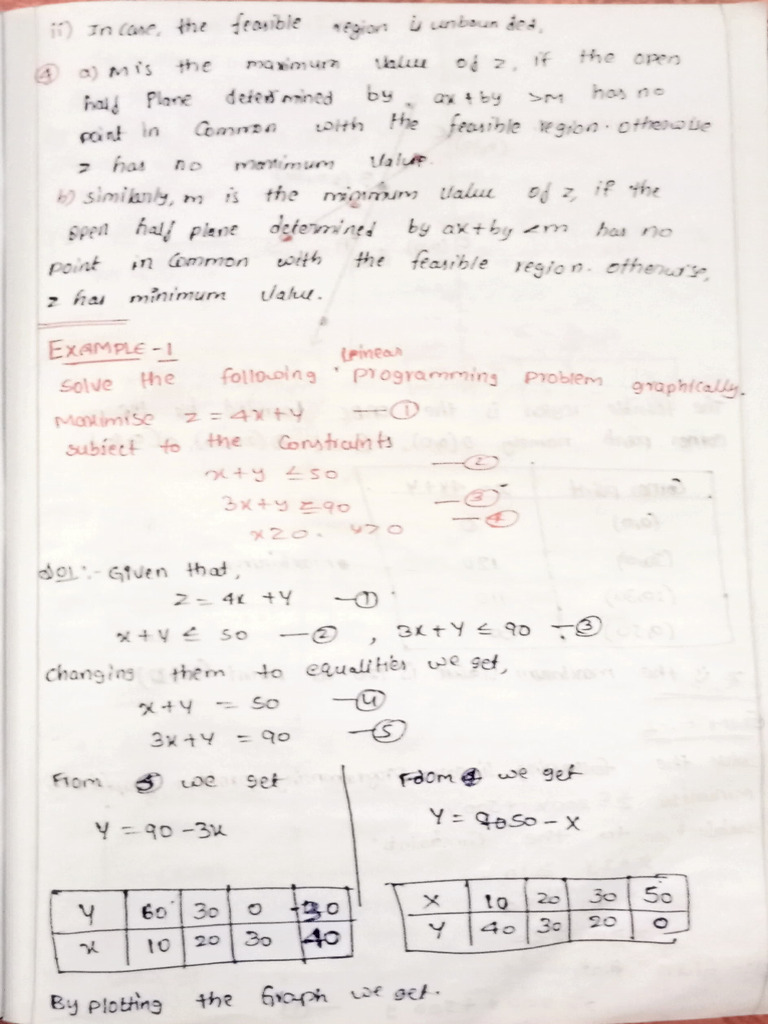 ii) In case, the feasible region is unbounded,
④ a) M is the maximum value of z, if the open
half plane determined by ax+by >M has no
point in Common with the feasible region. otherwise
z has no maximum value.
b) similarly, m is the minimum value of z, if the
open half plane determined by ax+by <m has no
point in Common with the feasible region. otherwise,
z has minimum value.
EXAMPLE-1
Solve the following Linear programming problem graphically.
Maximise z = 4x+y —①
subject to the Constraints
x+y ≤50 —②
3x+y ≤90 —③
x≥0, y≥0 —④
Sol:- Given that,
z = 4x +y —①
x+y ≤ 50 —② , 3x+y ≤ 90 —③
Changing them to equalities we get,
x+y = 50 —④
3x+y = 90 —⑤
From ⑤ we get
y = 90-3x
From ④ we get
y = 50-x
y 60 30 0 -30
x 10 20 30 40
x 10 20 30 50
y 40 30 20 0
By plotting the Graph we get.